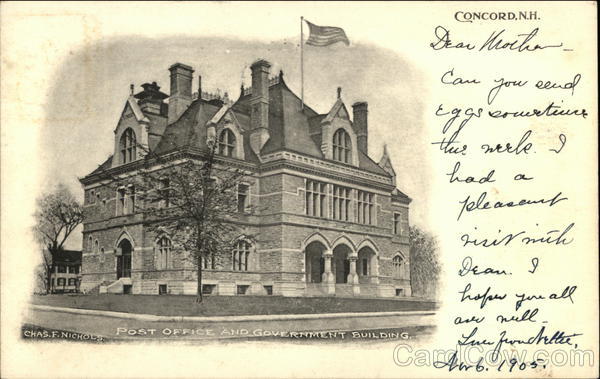 CONCORD, N.H.
Dear Mother—
Can you send
Eggs sometime
this week. I
had a
pleasant
visit with
Dean. I
hope you all
are well—
1905.
CHAS. F. NICHOLS.
POST OFFICE AND GOVERNMENT BUILDING.
CardCow.com